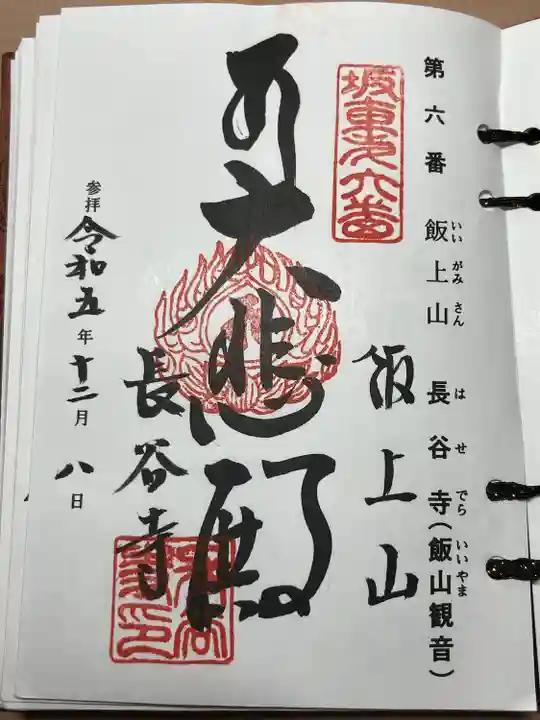 第六番 飯上山 長谷寺(飯山観音)
いい がみ さん は せ でら いいやま
坂東第六番
飯上山
大悲殿
長谷寺
参拝 令和五年十二月八日